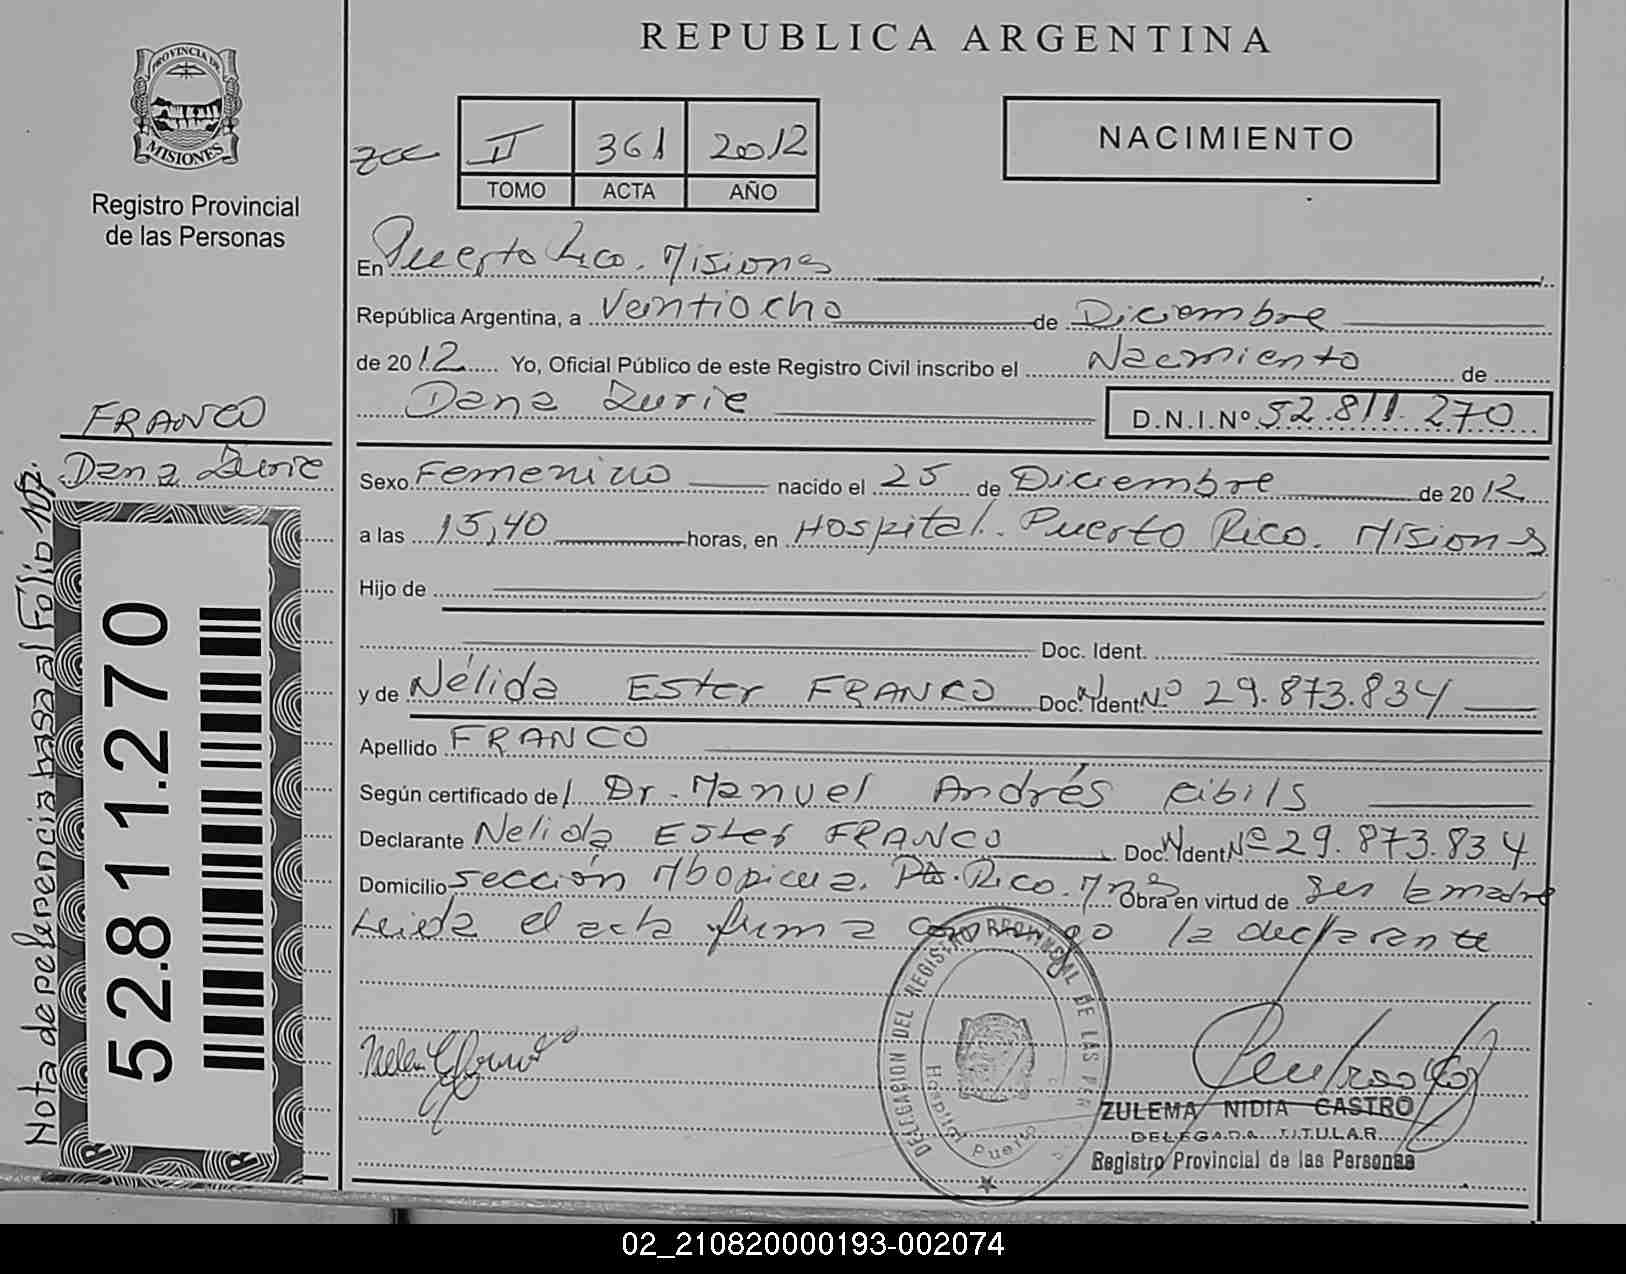 REPUBLICA ARGENTINA
PROVINCIA DE
MISIONES
Registro Provincial
de las Personas
II 361 2012
TOMO ACTA AÑO
NACIMIENTO
En Puerto Rico. Misiones
República Argentina, a Veintiocho de Diciembre
de 2012 Yo, Oficial Público de este Registro Civil inscribo el Nacimiento de
Dana D.N.I.Nº 52.811.270
FRANCO
Dana
Sexo Femenino nacido el 25 de Diciembre de 2012
a las 15,40 horas, en Hospital. Puerto Rico. Misiones
Hijo de
Doc. Ident.
y de Nélida Ester FRANCO Doc. Ident. Nº 29.873.834
Apellido FRANCO
Según certificado del Dr. Manuel Andrés Cibils
Declarante Nelida Ester FRANCO Doc. Ident. Nº 29.873.834
Domicilio sección Mbopicua. Pto. Rico. Mnes Obra en virtud de ser la madre
Leida el acta firma conmigo la declarante
DELEGACION DEL REGISTRO PROVINCIAL DE LAS PER
Hospital Puerto
ZULEMA NIDIA CASTRO
DELEGADA TITULAR
Registro Provincial de las Personas
Nota de referencia pasa al Folio
52.811.270
02_210820000193-002074